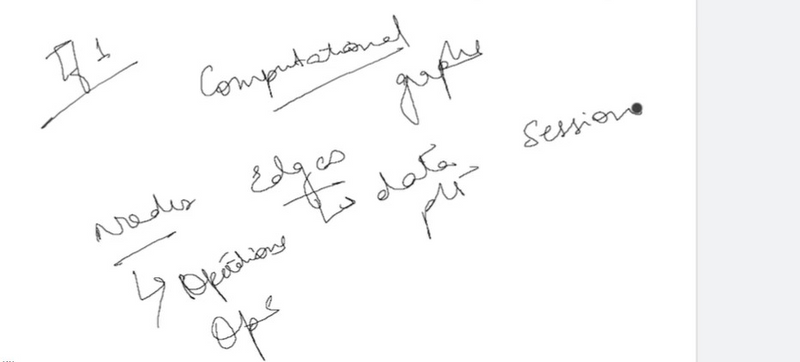 Tf 1
Computational graphs
Nodes Edges ↳ data session
↳ operations
Ops